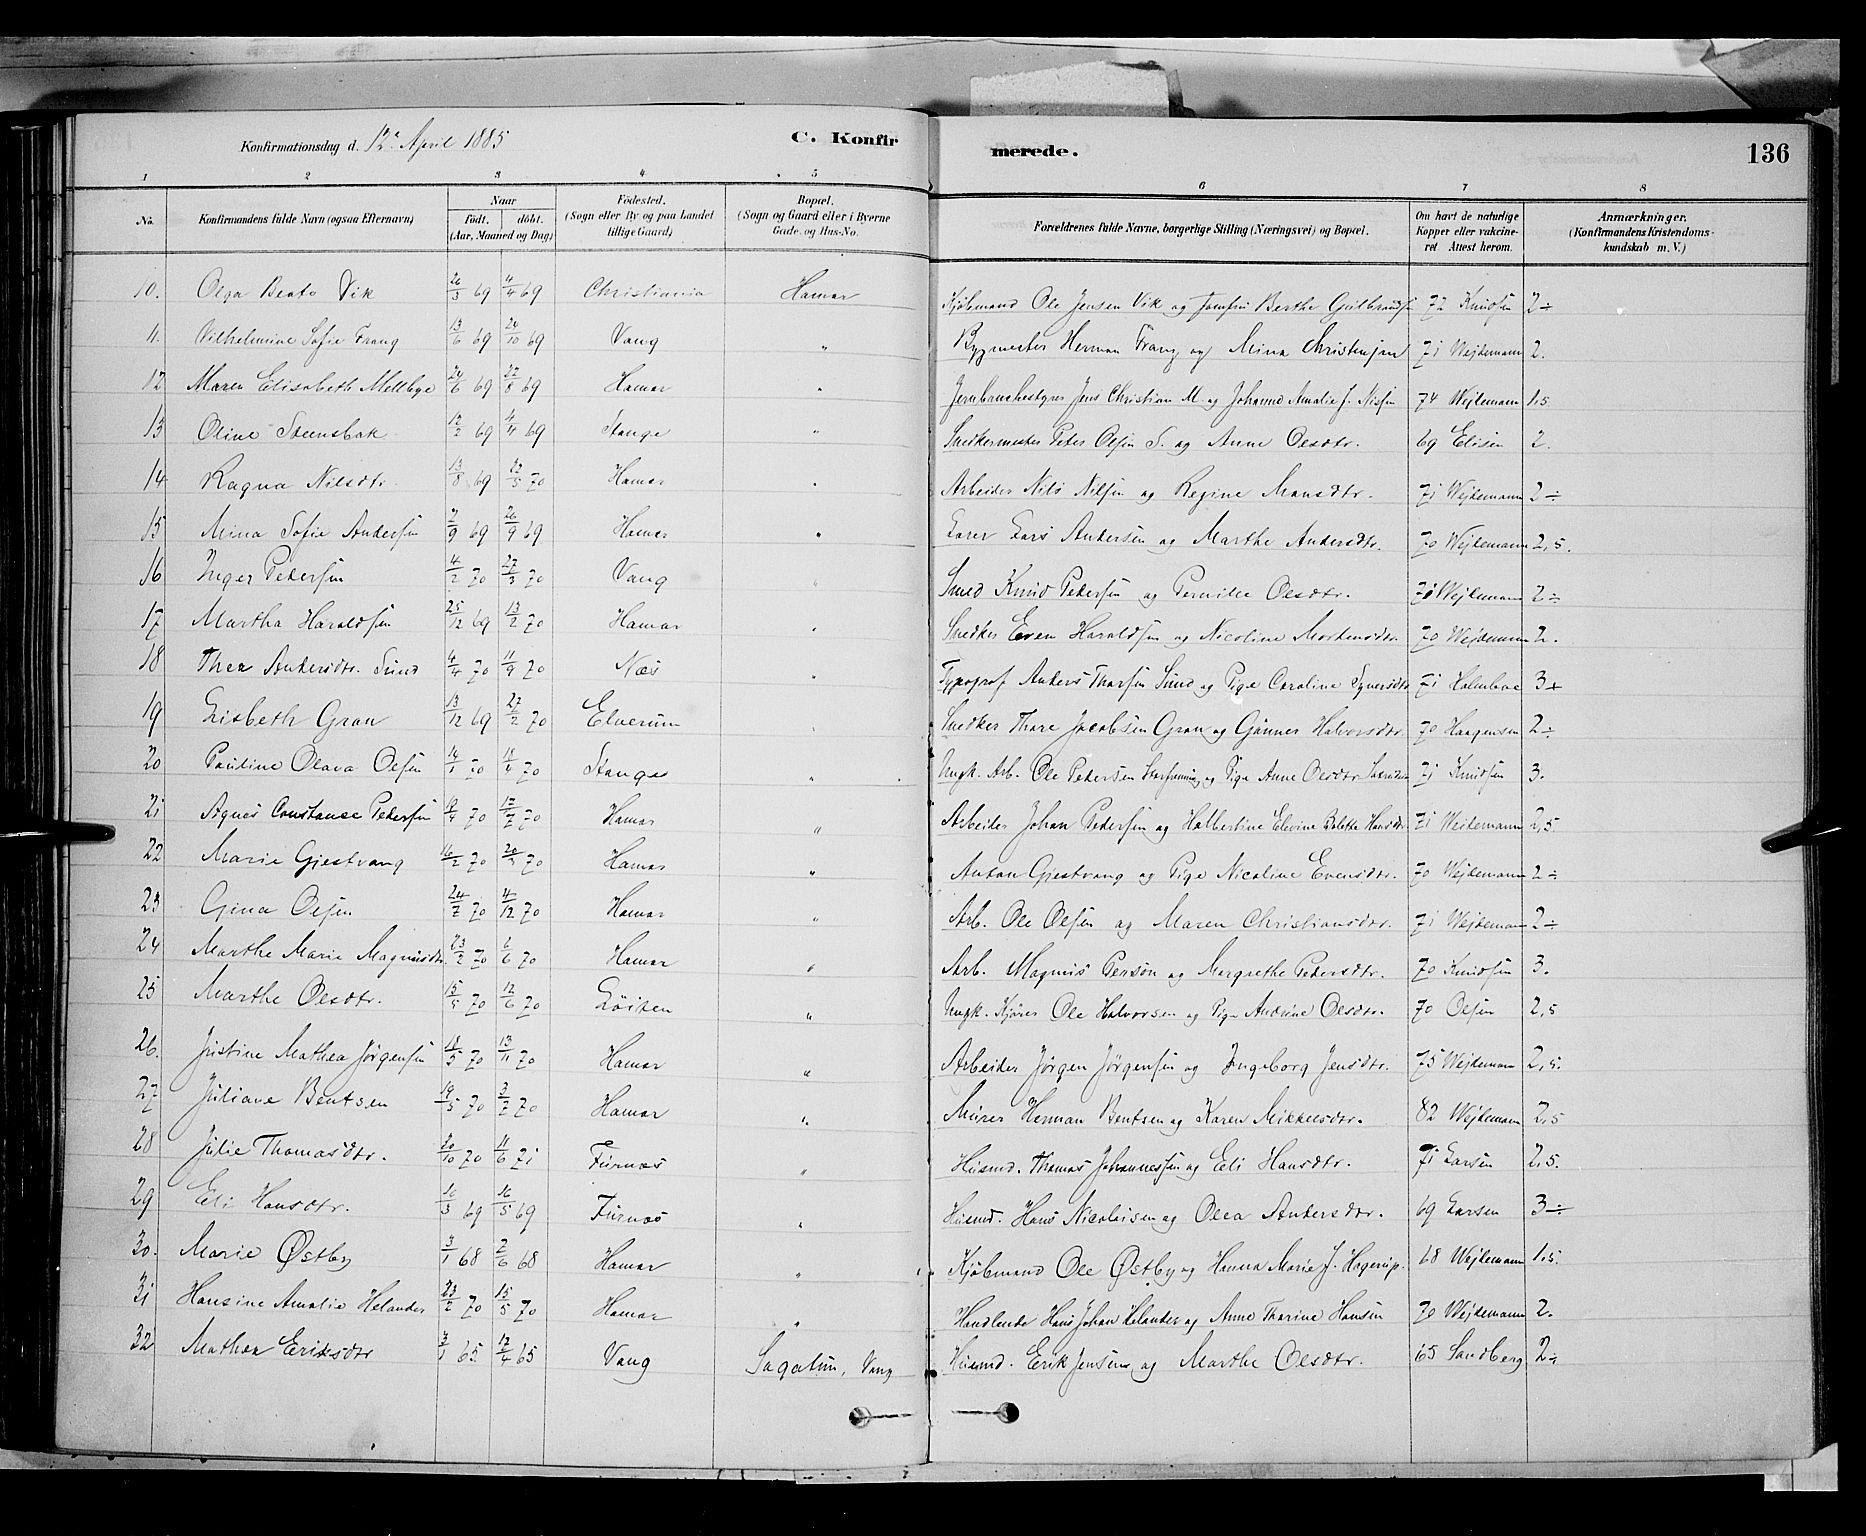 Konfirmationsdag d. 12te April 1885 C. Konfir merede. 136
1 2 3 4 5 6 7 8
No. Konfirmandens fulde Navn (ogsaa Efternavn) Naar født. døbt. (Aar, Maaned og Dag) Fødested. (Sogn eller By og paa Landet tillige Gaard) Bopæl. (Sogn og Gaard eller i Byerne Gade og Hus-No. Forældrenes fulde Navne, borgerlige Stilling (Næringsvei) og Bopæl. Om havt de naturlige Kopper eller vakcineret. Attest herom. Anmærkninger. (Konfirmandens Kristendomskundskab m. V.)
10. Olga Beate Vik 26/3 69 4/4 69 Christiania Hamar Kjøbmand Ole Jensen Vik og Jomfru Berthe Gulbrandsen 72 Knudsen 2÷
11. Vilhelmine Sofie Frang 13/6 69 24/10 69 Vang " Bygmester Herman Frang og Mina Christensen 71 Wejdemann 2.
12 Maren Elisabeth Mellbye 24/6 69 22/8 69 Hamar " Jernbanebestyrer Jens Christian M. og Johanne Amalie f. Nissen 74 Wejdemann 1,5.
13 Oline Steensbak 12/2 69 4/4 69 Stange " Snedkermester Peter Olsen S. og Anne Olsdtr. 69 Elisen 2.
14 Ragna Nilsdtr. 13/8 69 22/5 70 Hamar " Arbeider Nils Nilsen og Regine Monsdtr. 71 Wejdemann 2÷
15 Mina Sofie Andersen 2/9 69 26/9 69 Hamar " Lars Andersen og Marthe Andersdtr. 70 Wejdemann 2,5.
16 Inger Pedersen 4/2 70 27/3 70 Vang " Smed Knud Pedersen og Pernille Olsdtr. 70 Wejdemann 2÷
17 Martha Haraldsen 25/12 69 13/2 70 Hamar " Snedker Even Haraldsen og Nicoline Mortensdtr. 70 Wejdemann 2.
18 Thea Andersdtr. Sund 4/4 70 11/9 70 Næs " Typograf Anders Thorsen Sund og Pige Caroline Syversdtr. 71 Holmboe 3+
19 Lisbeth Gran 13/12 69 27/2 70 Elverum " Snedker Thore Jacobsen Gran og Gunner Halvorsdtr. 70 Haagensen 2÷
20 Pauline Olava Olsen 14/1 70 18/4 70 Stange " Ungk. Arb. Ole Pedersen og Pige Anne Olsdtr. 71 Knudsen 3.
21 Agnes Constance Pedersen 19/4 70 17/7 70 Hamar " Arbeider Johan Pedersen og Halbertine Elevine Bolette Hansdtr. 71 Wejdemann 2,5.
22 Marie Gjestvang 16/2 70 20/3 70 Hamar " Anton Gjestvang og Pige Nicoline Evensdtr. 70 Wejdemann 2÷
23 Gina Olsen 24/7 70 4/12 70 Hamar " Arb. Ole Olsen og Maren Christiansdtr. 71 Wejdemann 2÷
24 Marthe Marie Magnusdtr. 23/2 70 6/6 70 Hamar " Arb. Magnus Person og Margrethe Pedersdtr. 70 Knudsen 3.
25 Marthe Olsdtr. 15/5 70 12/6 70 Løiten " Ungk. Kjører Ole Halvorsen og Pige Andrine Olsdtr. 70 Olsen 2,5
26. Justine Mathea Jørgensen 18/5 70 13/11 70 Hamar " Arbeider Jørgen Jørgensen og Ingeborg Jensdtr. 75 Wejdemann 2,5.
27 Juliane Bentsen 19/5 70 3/7 70 Hamar " Murer Herman Bentsen og Karen Mikkelsdtr. 82 Wejdemann 2,5
28 Julie Thomasdtr. 20/10 70 11/6 71 Furnæs " Husmd. Thomas Johannessen og Eli Hansdtr. 71 Larsen 2,5.
29 Eli Hansdtr. 10/3 69 16/5 69 Furnæs " Husmd. Hans Nicolaisen og Olea Andersdtr. 69 Larsen 3÷
30. Marie Østby 3/1 68 2/6 68 Hamar " Kjøbmand Ole Østby og Hanna Marie f. Hagerup. 68 Wejdemann 1,5.
31 Hansine Amalie Helander 23/2 70 15/5 70 Hamar " Handlende Hans Johan Helander og Anne Thorine Hansen 70 Wejdemann 2.
32 Mathea Eriksdtr 3/1 65. 17/4 65 Vang Sagatun, Vang Husmd. Erik Jensen og Marthe Olsdtr. 65 Sandberg 2÷